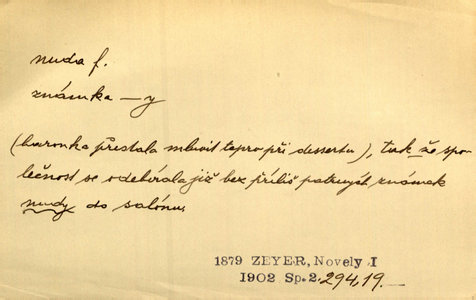 nuda f.
známka –y
(baronka přestala mluvit teprv při dessertu), tak že spo-
lečnost se odebírala již bez příliš patrných známek
nudy do salónu.
1879 ZEYER, Novely I
1902 Sp.2, 294,19.—